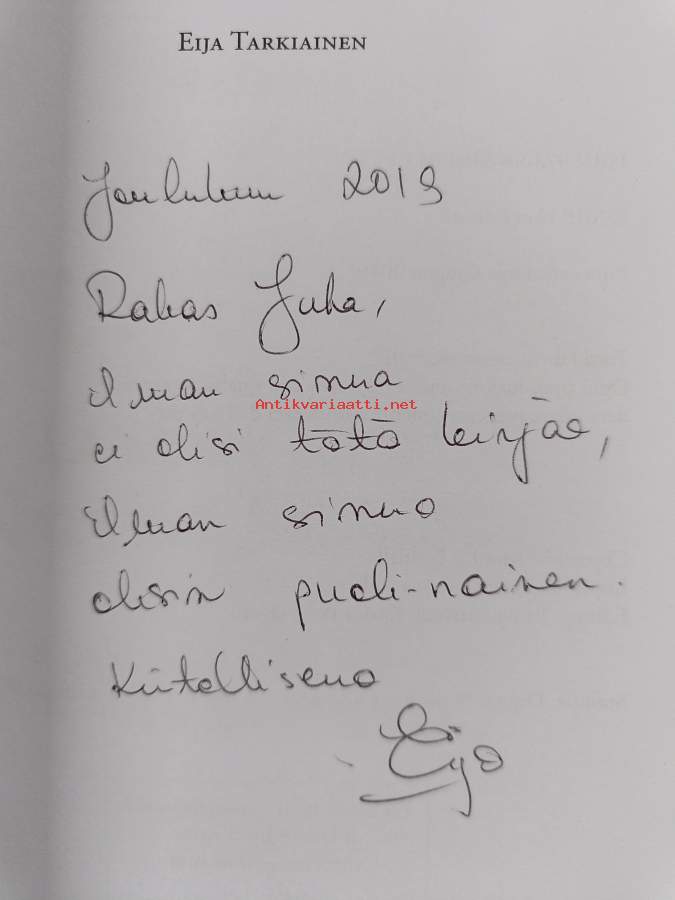 EIJA TARKIAINEN
Joulukuu 2019
Rakas Juha,
ilman sinua
Antikvariaatti.net
ei olisi tätä kirjaa,
ilman sinua
olisin puoli-nainen.
Kiitollisena
Eija